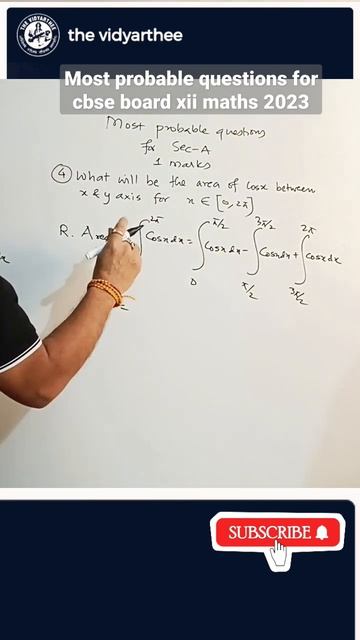 THE VIDYARTHEE
the vidyarthee
Most probable questions for
cbse board xii maths 2023
Most probable questions
for Sec-A
1 marks
④ What will be the area of cosx between
x & y axis for x ∈ [0, 2π]
R. Area ∫ 2π cosx dx = ∫ 0 π/2 cosx dx - ∫ π/2 3π/2 cosx dx + ∫ 3π/2 2π cosx dx
SUBSCRIBE